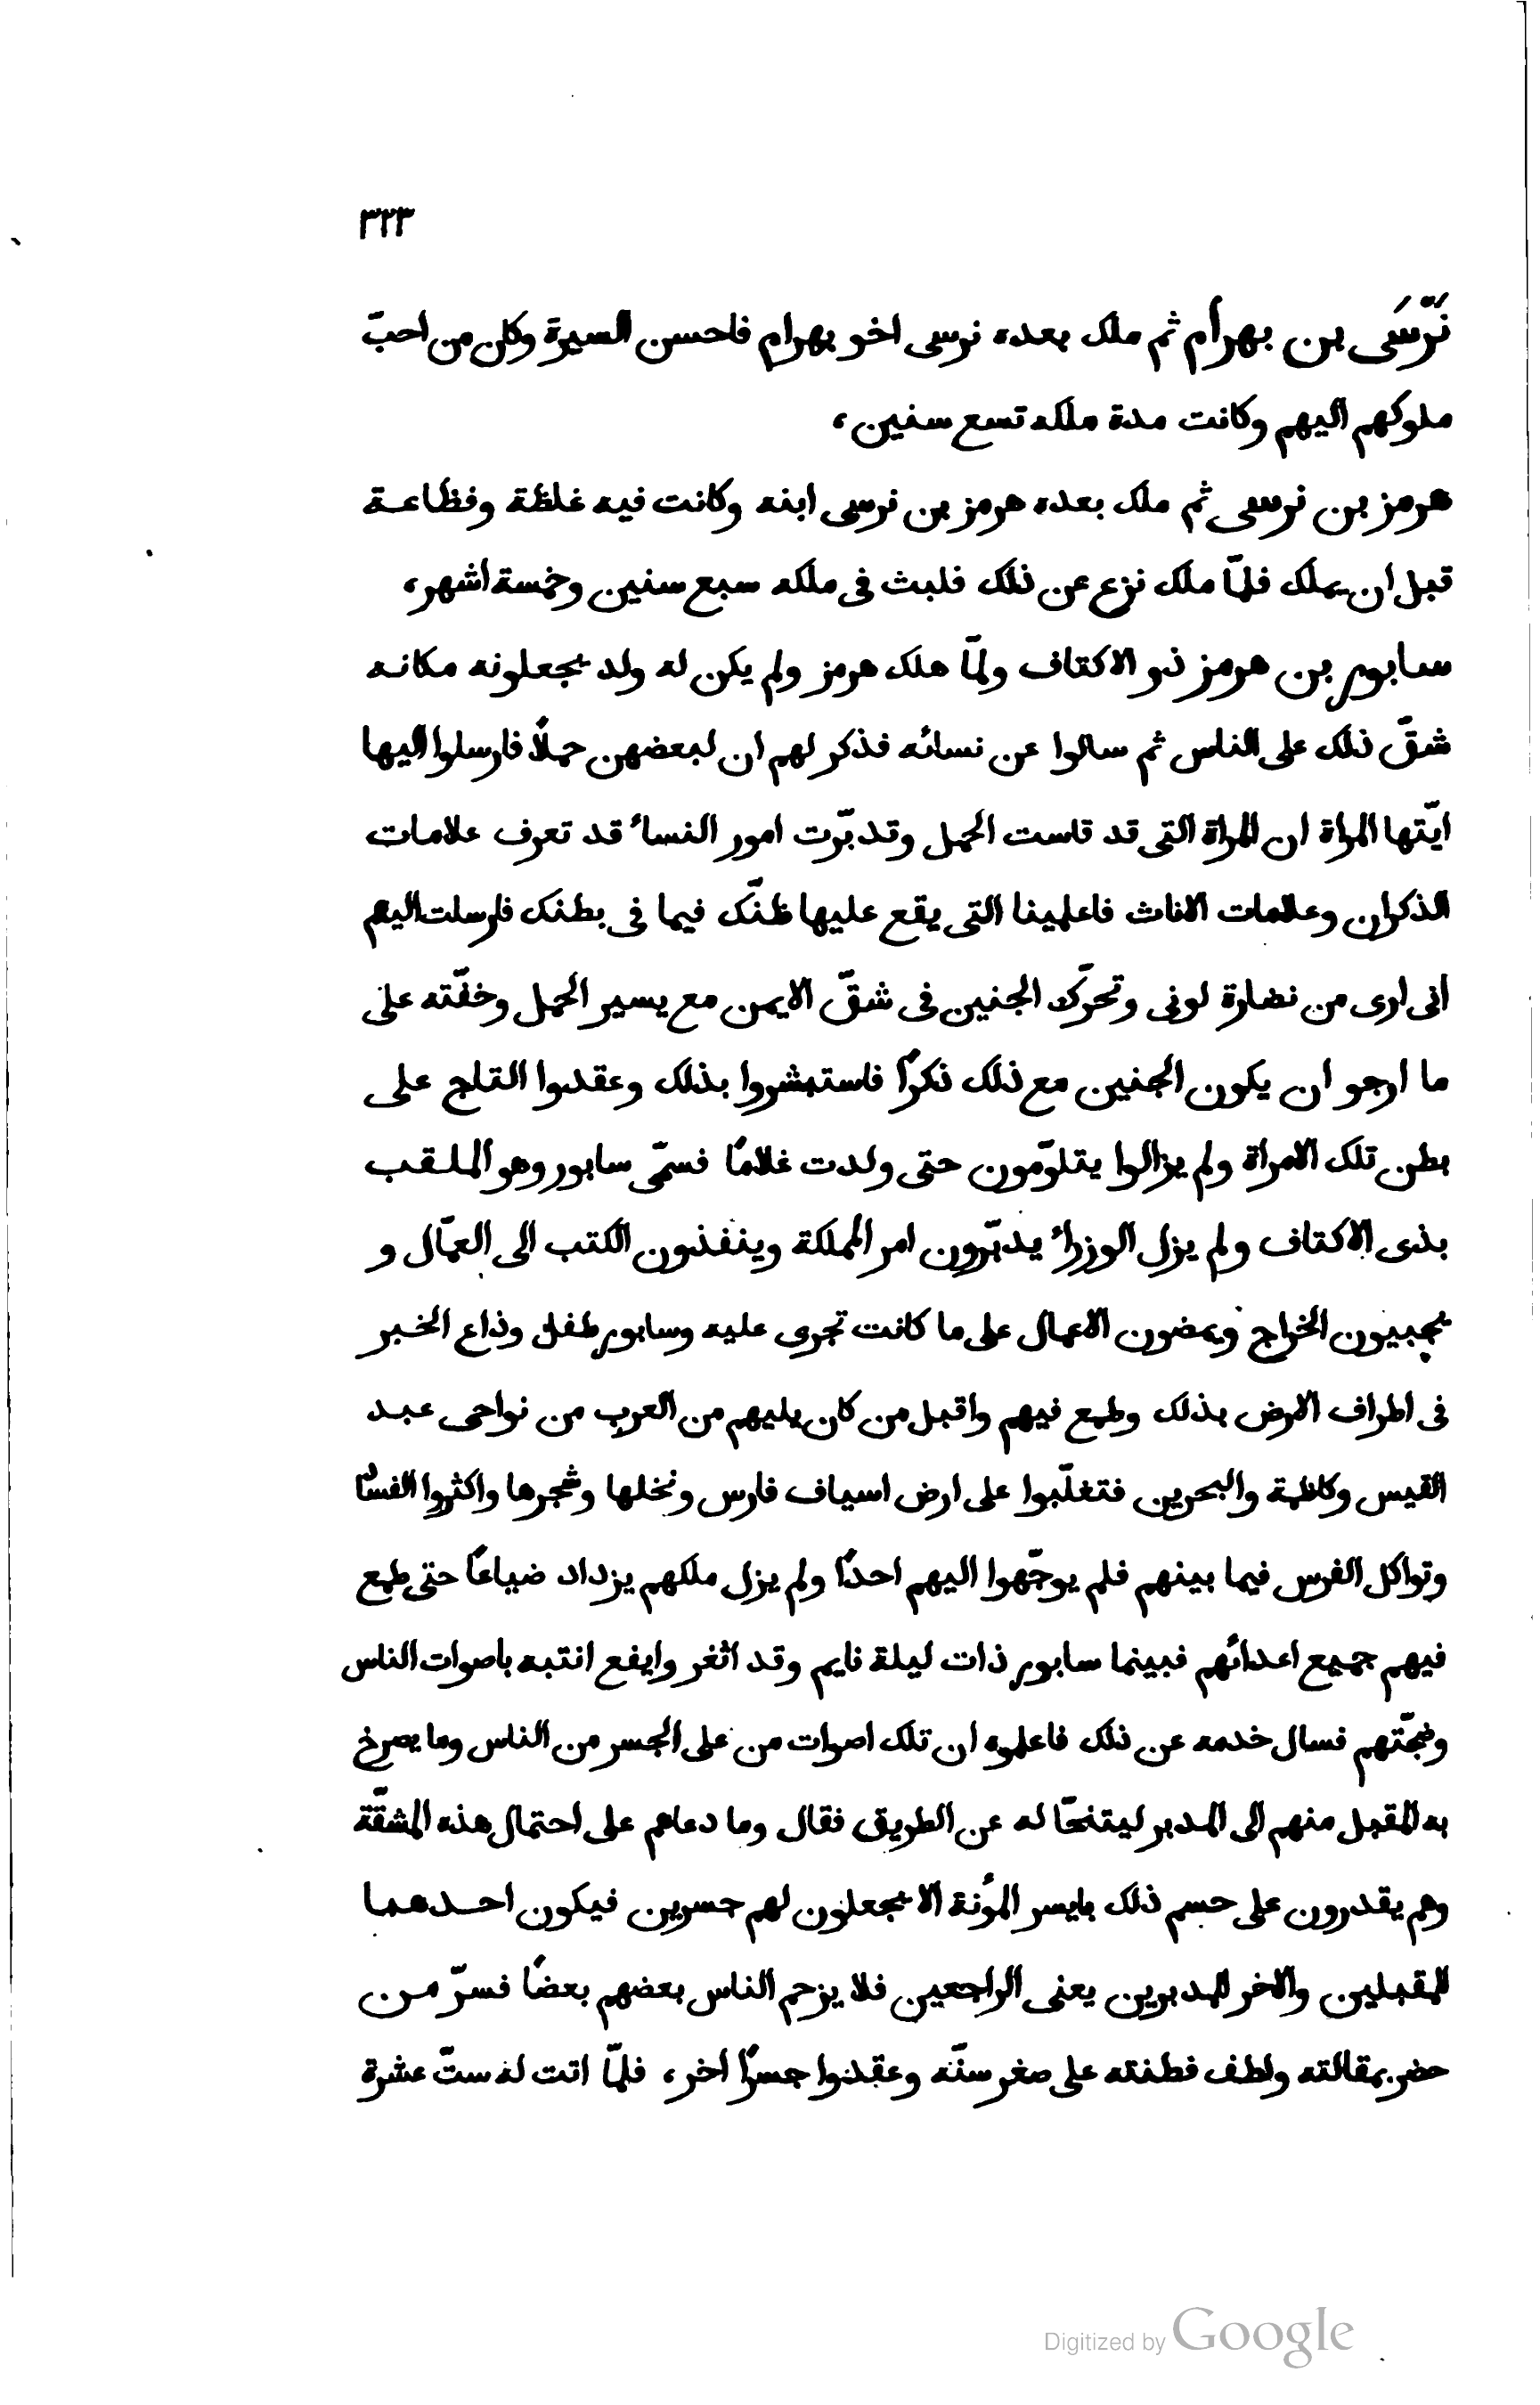 ٣٢٣
نَرْسَى بن بهرام ثم ملك بعده نرسى اخو بهرام فاحسن السيرة وكان من احبّ
ملوكهم اليهم وكانت مدة ملكه تسع سنين،
هرمز بن نرسى ثم ملك بعده هرمز بن نرسى ابنه وكانت فيه غلظة وفظاعة
قبل ان يملك فلمّا ملك نزع عن ذلك فلبث فى ملكه سبع سنين وخمسة اشهر،
سابور بن هرمز ذو الاكتاف ولمّا هلك هرمز ولم يكن له ولد يجعلونه مكانه
شقّ ذلك على الناس ثم سالوا عن نسائه فذكر لهم ان لبعضهن حملًا فارسلوا اليها
ايّتها المراة ان المراة التى قد قاست الحمل وتدبّرت امور النساء قد تعرف علامات
الذكران وعلامات الاناث فاعلمينا التى يقع عليها ظنّك فيما فى بطنك فارسلت اليهم
انى ارى من نضارة لونى وتحرّك الجنين فى شقّ الايمن مع يسير الحمل وخفّته على
ما ارجو ان يكون الجنين مع ذلك ذكرًا فاستبشروا بذلك وعقدوا التاج على
بطن تلك الامراة ولم يزالوا يتلوّمون حتى ولدت غلامًا فسمّى سابور وهو الملقب
بذى الاكتاف ولم يزل الوزراء يدبّرون امر المملكة وينفذون الكتب الى العمّال و
يجبيون الخراج ويمضون الاعمال على ما كانت تجرى عليه وسابور طفل وذاع الخبر
فى اطراف الارض بذلك وطمع فيهم واقبل من كان يليهم من العرب من نواحى عبد
القيس وكاظمة والبحرين فتغلّبوا على ارض اسياف فارس ونخلها وشجرها واكثروا الفساد
وتواكل الفرس فيما بينهم فلم يوجّهوا اليهم احدًا ولم يزل ملكهم يزداد ضياعًا حتى طمع
فيهم جميع اعدائهم فبينما سابور ذات ليلة نايم وقد اثغر وايفع انتبه باصوات الناس
وضجّتهم فسال خدمه عن ذلك فاعلموه ان تلك اصوات من على الجسر من الناس وما يصرخ
به المقبل منهم الى المدبر ليتنحّا له عن الطريق فقال وما دعاهم على احتمال هذه المشقّة
وهم يقدرون على حسم ذلك بايسر المؤنة الا يجعلون لهم جسرين فيكون احدهما
للمقبلين والاخر للمدبرين يعنى الراجعين فلا يزحم الناس بعضهم بعضًا فسرّ من
حضر بمقالته ولطف فطنته على صغر سنّه وعقدوا جسرًا اخر، فلمّا اتت له ستّ عشرة
Digitized by Google